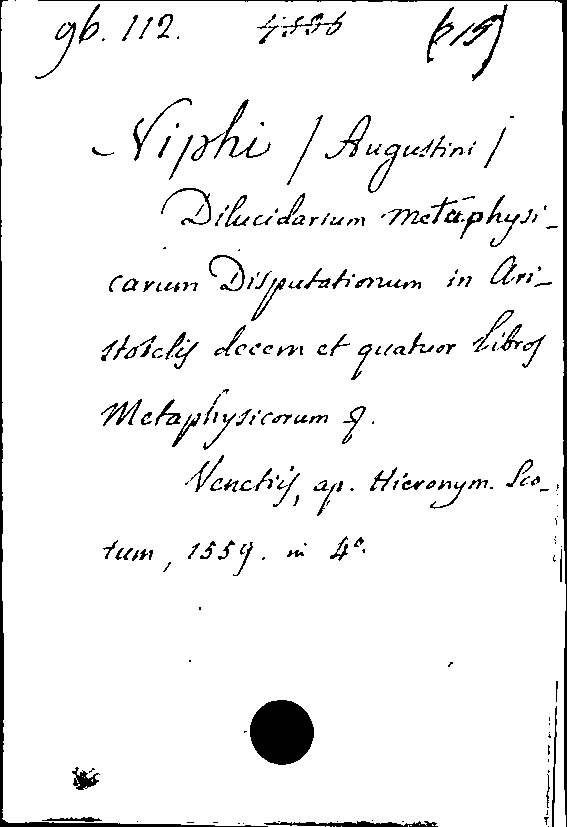 gb. 112. 4336 (215)
Niphi / Augustini /
Dilucidarium metaphysi-
carum Disputationum in Ari-
stotelis decem et quatuor Libros
Metaphysicorum &.
Venetiis, ap. Hieronym. Sco-
tum, 1559. in 4°.